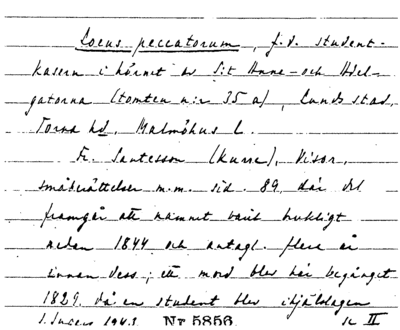 Locus peccatorum, f.d. student-
kasern i hörnet av S:t Anne- och Adel-
gatorna (tomten n:r 35 a), Lunds stad,
Torna hd, Malmöhus l.
Fr. Santesson (Kurre), Visor,
småberättelser m.m. sid. 89, där det
framgår att namnet varit brukligt
redan 1844 och antagl. flera år
innan dess; ett mord blev här begånget
1829 då en student blev ihjälslagen
1943 Nr 5856 II